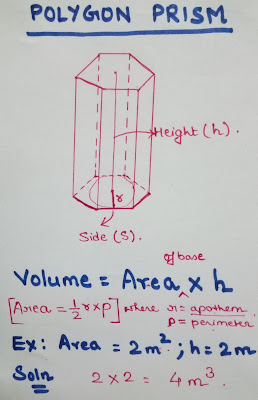 POLYGON PRISM
Height (h).
r
Side (S).
of base
Volume = Area x h
[Area = 1/2 r x p] where r = apothem.
p = perimeter
Ex: Area = 2m²; h = 2m
Soln
2 x 2 = 4m³.